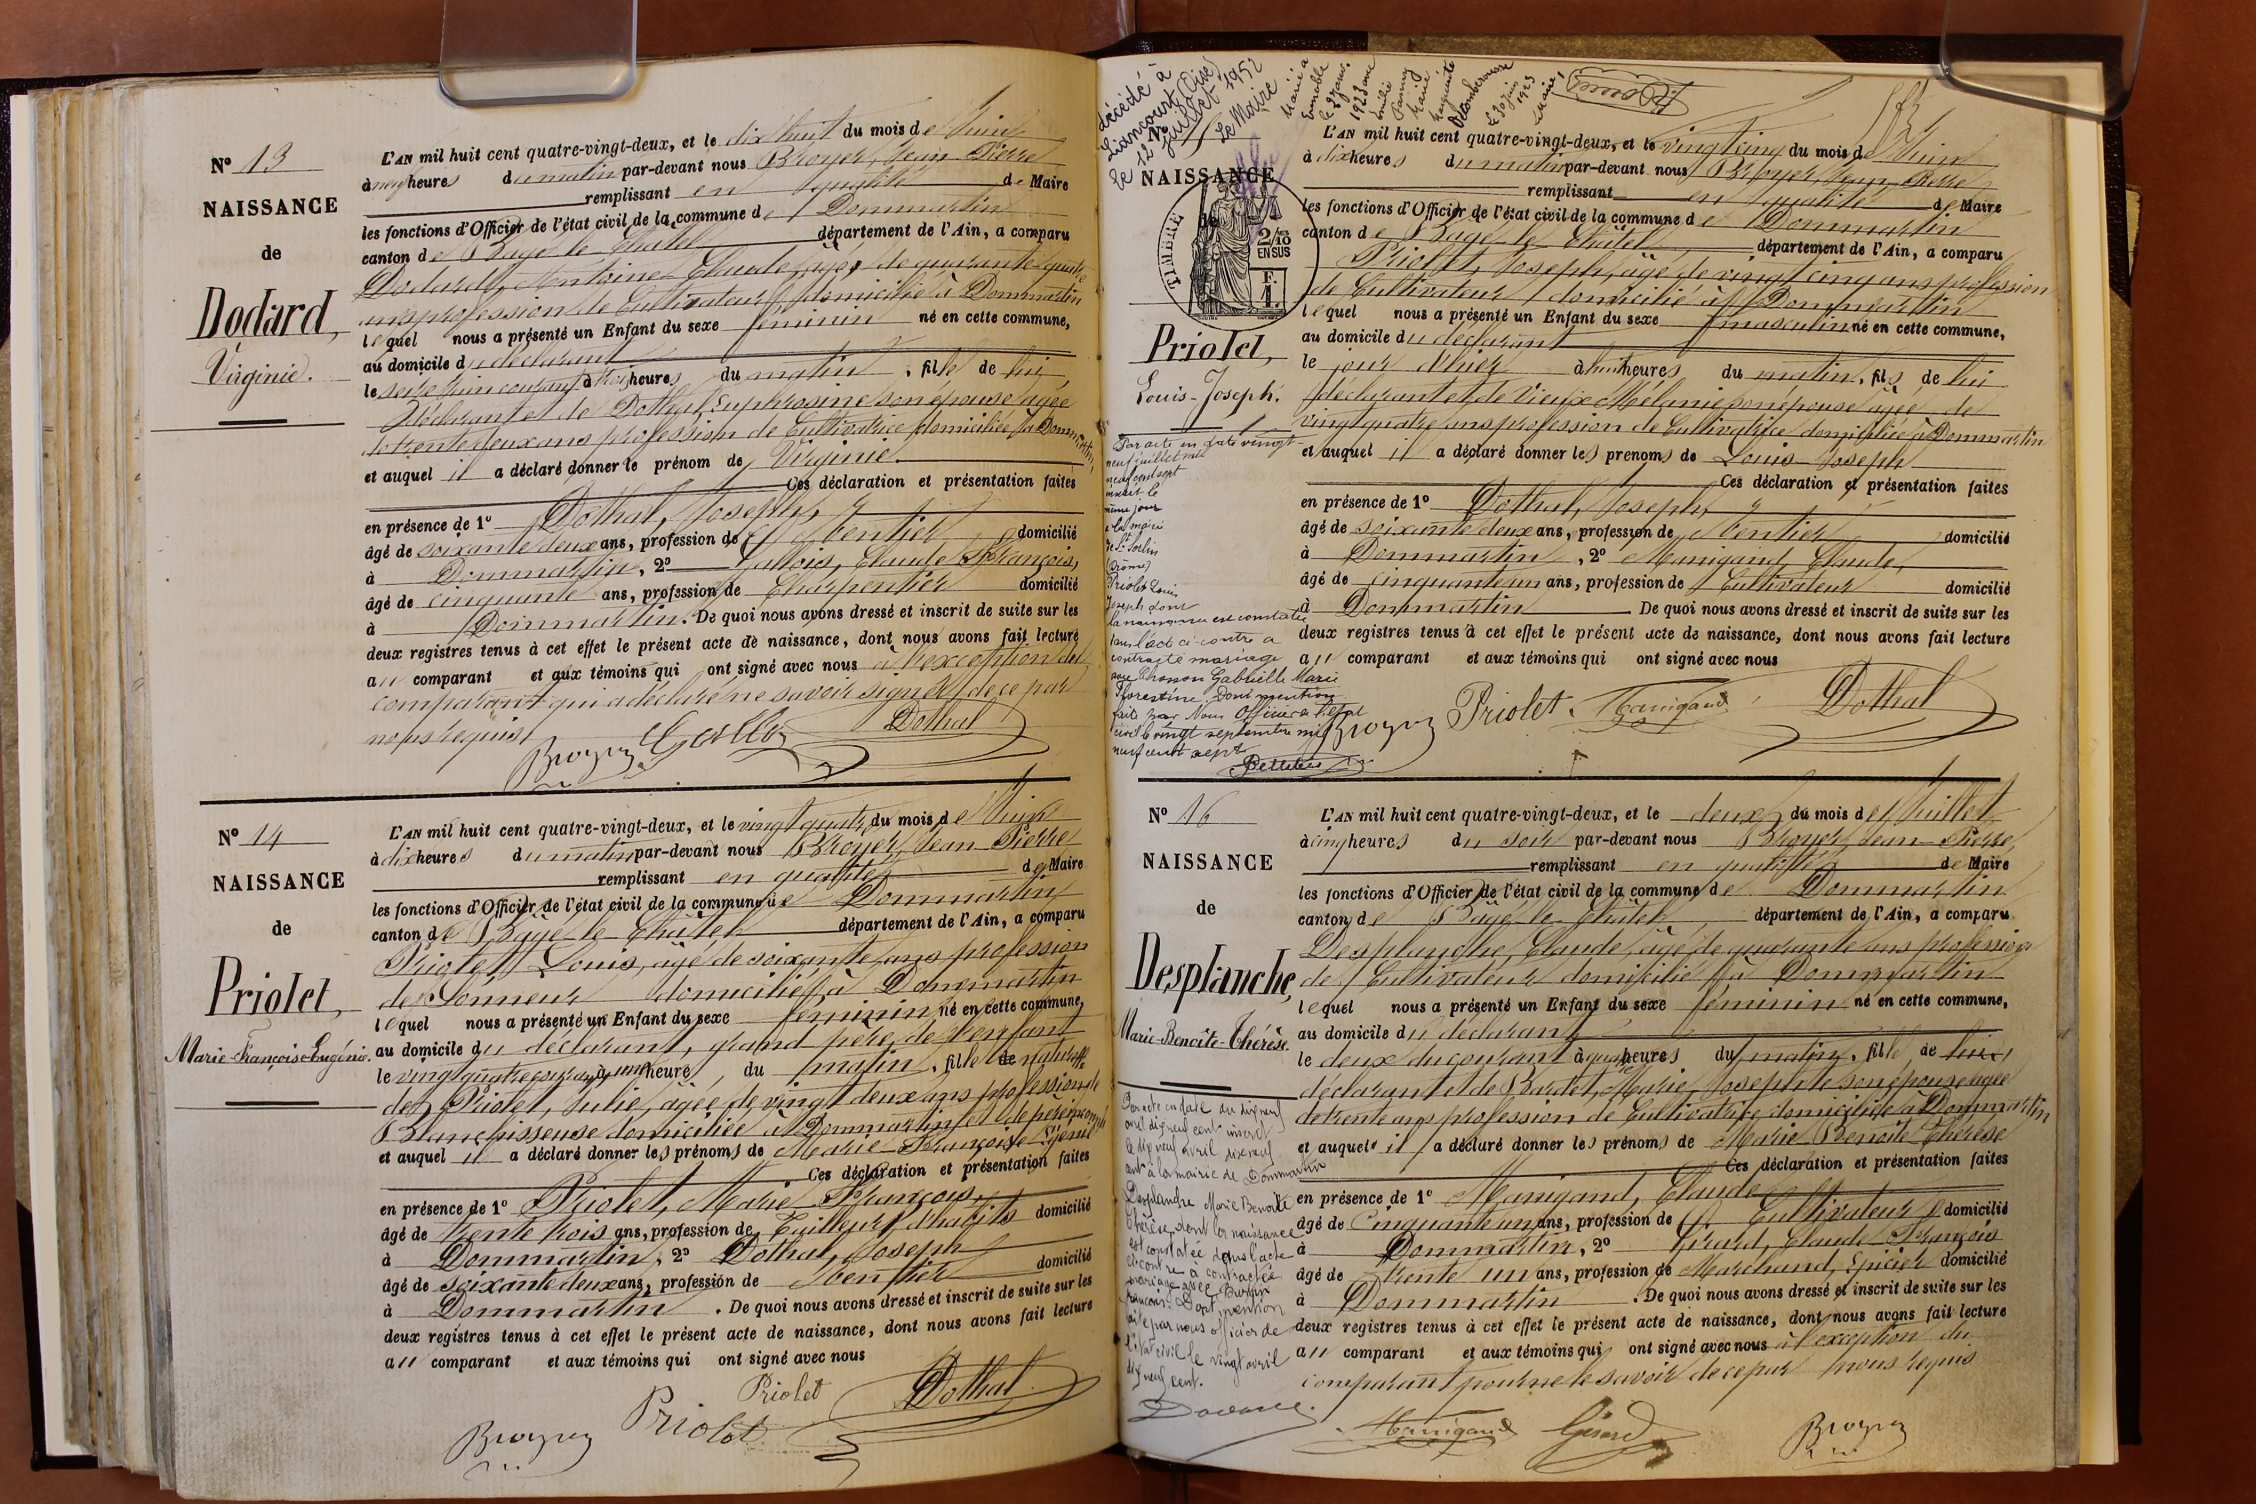 N° 13
NAISSANCE
de
Dodard,
Virginie.
L'AN mil huit cent quatre-vingt-deux, et le dix huit du mois de Juin
à neuf heures du matin par-devant nous Broyer, Jean Pierre
remplissant en qualité de Maire
les fonctions d'Officier de l'état civil de la commune de Dommartin
canton de Bâgé le Châtel département de l'Ain, a comparu
Dodard, Antoine Claude, âgé de quarante quatre
ans profession de Cultivateur domicilié à Dommartin
lequel nous a présenté un Enfant du sexe féminin né en cette commune,
au domicile du déclarant
le seize Juin courant à trois heures du matin, fille de lui,
déclarant et de Dothal, Euphrosine son épouse âgée
de trente deux ans profession de Cultivatrice domiciliée à Dommartin,
et auquel il a déclaré donner le prénom de Virginie.
Ces déclaration et présentation faites
en présence de 1° Dothal, Joseph,
âgé de soixante deux ans, profession de Rentier domicilié
à Dommartin, 2° Gallois, Claude François,
âgé de cinquante ans, profession de Charpentier domicilié
à Dommartin. De quoi nous avons dressé et inscrit de suite sur les
deux registres tenus à cet effet le présent acte de naissance, dont nous avons fait lecture
au comparant et aux témoins qui ont signé avec nous à l'exception du
comparant qui a déclaré ne savoir signer de ce par
nous requis
Broyer Dothal
N° 14
NAISSANCE
de
Priolet,
Marie-Françoise-Eugénie.
L'AN mil huit cent quatre-vingt-deux, et le vingt quatre du mois de Juin
à dix heures du matin par-devant nous Broyer, Jean Pierre
remplissant en qualité de Maire
les fonctions d'Officier de l'état civil de la commune de Dommartin
canton de Bâgé le Châtel département de l'Ain, a comparu
Priolet, Louis, âgé de soixante ans profession
de Sonneur domicilié à Dommartin
lequel nous a présenté un Enfant du sexe féminin né en cette commune,
au domicile du déclarant, grand père de l'enfant
le vingt quatre courant à une heure, du matin, fille de naturelle
de Priolet, Julie, âgée de vingt deux ans profession de
Blanchisseuse domiciliée à Dommartin et de père inconnu
et auquel il a déclaré donner les prénoms de Marie Françoise Eugénie
Ces déclaration et présentation faites
en présence de 1° Priolet, Marie François,
âgé de trente trois ans, profession de Tailleur d'habits domicilié
à Dommartin, 2° Dothal, Joseph
âgé de soixante deux ans, profession de Rentier domicilié
à Dommartin. De quoi nous avons dressé et inscrit de suite sur les
deux registres tenus à cet effet le présent acte de naissance, dont nous avons fait lecture
au comparant et aux témoins qui ont signé avec nous
Priolet Dothal
Broyer Priolet
décédé à
Liancourt (Oise)
le 12 juillet 1952
Le Maire
Marié à
Grenoble
le 27 janv.
1923
N° 15
NAISSANCE
TIMBRE
2/10
EN SUS
F.
1.
Priolet,
Louis-Joseph.
Par acte en date vingt-
neuf juillet mil
neuf cent sept
inscrit le
même jour
à la mairie
de St Sorlin
(Drôme)
Priolet Louis
Joseph dont
la naissance est constatée
dans l'acte ci-contre a
contracté mariage
avec Gabrielle Marie
Florestine. Dont mention
faite par Nous Officier de l'état
civil le vingt septembre mil
neuf cent sept
L'AN mil huit cent quatre-vingt-deux, et le vingt cinq du mois de Juin
à dix heures du matin par-devant nous Broyer, Jean Pierre
remplissant en qualité de Maire
les fonctions d'Officier de l'état civil de la commune de Dommartin
canton de Bâgé le Châtel département de l'Ain, a comparu
Priolet, Joseph, âgé de vingt cinq ans profession
de Cultivateur domicilié à Dommartin
lequel nous a présenté un Enfant du sexe masculin né en cette commune,
au domicile du déclarant
le jour d'hier à huit heures du matin, fils de lui
déclarant et de Vieux Mélanie son épouse âgée de
vingt quatre ans profession de Cultivatrice domiciliée à Dommartin
et auquel il a déclaré donner les prenoms de Louis Joseph
Ces déclaration et présentation faites
en présence de 1° Dothal, Joseph,
âgé de soixante deux ans, profession de Rentier domicilié
à Dommartin, 2° Manigand, Claude,
âgé de cinquante un ans, profession de Cultivateur domicilié
à Dommartin De quoi nous avons dressé et inscrit de suite sur les
deux registres tenus à cet effet le présent acte de naissance, dont nous avons fait lecture
au comparant et aux témoins qui ont signé avec nous
Broyer Priolet. Manigand Dothal
N° 16
NAISSANCE
de
Desplanche,
Marie-Benoîte-Thérèse.
Par acte en date du dix neuf
avril dix neuf cent inscrit
le dix neuf avril dix neuf
cent à la mairie de Dommartin
Desplanche Marie Benoite
Thérèse, dont la naissance
est constatée dans l'acte
ci-contre à contracté
mariage avec
François. Dont mention
faite par nous officier de
l'état civil le vingt avril
dix neuf cent.
L'AN mil huit cent quatre-vingt-deux, et le deux du mois de Juillet
à cinq heures du soir par-devant nous Broyer, Jean Pierre,
remplissant en qualité de Maire
les fonctions d'Officier de l'état civil de la commune de Dommartin
canton de Bâgé le Châtel département de l'Ain, a comparu
Desplanche, Claude, âgé de quarante ans profession
de Cultivateur domicilié à Dommartin
lequel nous a présenté un Enfant du sexe féminin né en cette commune,
au domicile du déclarant
le deux du courant à quatre heures du matin, fille de lui,
déclarant et de Bardet, Marie Josephte son épouse âgée
de trente ans profession de Cultivatrice domiciliée à Dommartin
et auquel il a déclaré donner les prénoms de Marie Benoite Thérèse
Ces déclaration et présentation faites
en présence de 1° Manigand, Claude
âgé de Cinquante un ans, profession de Cultivateur domicilié
à Dommartin, 2° Girard, Claude François
âgé de trente un ans, profession de Marchand, Epicier domicilié
à Dommartin. De quoi nous avons dressé et inscrit de suite sur les
deux registres tenus à cet effet le présent acte de naissance, dont nous avons fait lecture
au comparant et aux témoins qui ont signé avec nous à l'exception du
comparant pour ne le savoir de ce par nous requis
Manigand Girard Broyer